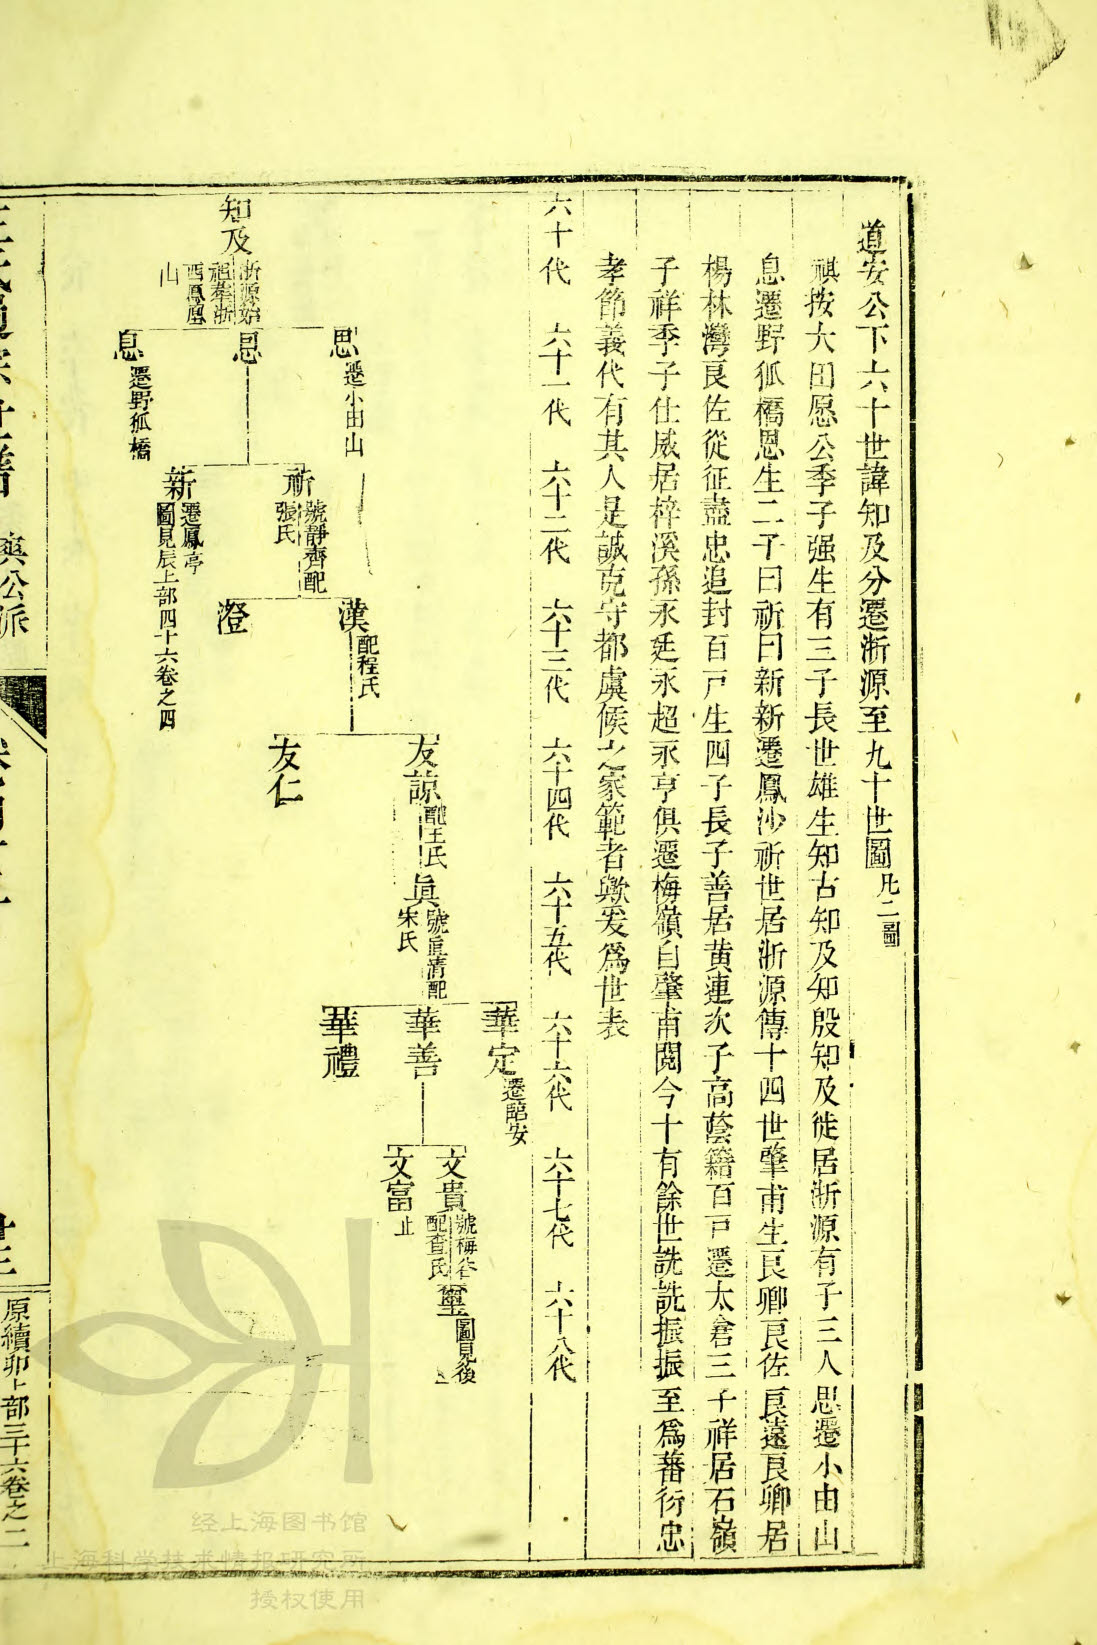 道安公下六十世諱知及分遷浙源至九十世圖凡二圖
祺按大田愿公季子强生有三子長世雄生知古知及知殷知及徙居浙源有子三人思遷小由山
息遷野狐橋恩生二子曰祈曰新新遷鳳沙祈世居浙源傳十四世肇甫生良卿良佐良遠良卿居
楊林灣良佐從征盡忠追封百戸生四子長子善居黄連次子高蔭籍百戸遷太倉三子祥居石嶺
子祥季子仕威居梓溪孫永廷永超永亨俱遷梅嶺自肇甫閱今十有餘世詵詵振振至爲蕃衍忠
孝節義代有其人是誠克守都虞候之家範者歟爰爲世表
六十代 六十一代 六十二代 六十三代 六十四代 六十五代 六十六代 六十七代 六十八代
華定遷臨安
文貴號梅谷配查氏
璽圖見後
友諒配王氏
眞號直清配宋氏
華善
文富止
思遷小由山
漢配程氏
華禮
祈號靜齊配張氏
友仁
知及浙源始祖葬浙西鳳凰山
恩
澄
新遷鳳亭圖見辰上部四十六卷之四
息遷野狐橋
原續卯上部三十六卷之二
经上海图书馆
上海科学技术情报研究所
授权使用